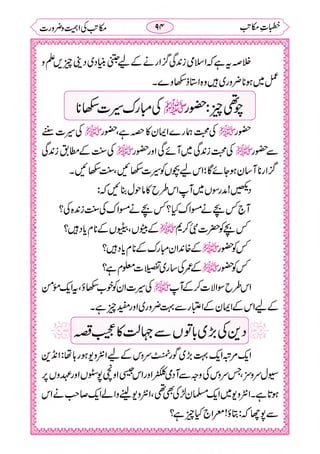 خطباتِ مکاتب
۹۴
مکاتب کی اہمیت و ضرورت
خلاصہ یہ ہے کہ اسلامی زندگی گزارنے کے لیے جتنی بنیادی دینی چیزیں علم و
عمل میں ہونا ضروری ہیں وہ استاذ سکھا وے۔
چوتھی چیز: حضور ﷺ کی مبارک سیرت سکھانا
حضور ﷺ کی محبت ہمارے ایمان کا حصہ ہے، حضور ﷺ کی سیرت سننے
سے حضور ﷺ کی محبت زندگی میں آئے گی اور حضور ﷺ کی سنت کے مطابق زندگی
گزارنا آسان ہو جاوے گا؛ اس لیے بچوں کو سیرت سکھائیں، سنت سکھائیں۔
دیکھیں! مدرسوں میں آپ اس طرح کا ماحول بنائیں کہ:
آج کس بچے نے مسواک کیا؟ کس بچے نے مسواک کی سنت زندہ کی؟
کس بچے کو حضور نبی کریم ﷺ کے بیٹوں کے، بیٹیوں کے نام یاد ہیں؟
کس کو حضور ﷺ کے مبارک خاندان کے نام یاد ہیں؟
کس کو حضور ﷺ کے عمر کی ساری تفصیلات معلوم ہے؟
اس طرح سوالات کر کے آپ ﷺ کی سیرت ان کو خوب سکھاؤ، یہ ایک مؤمن
کے لیے اس کے ایمان کے اعتبار سے بہت ضروری اور مفید چیز ہے۔
دین کی بڑی باتوں سے جہالت کا عجیب قصہ
ایک مرتبہ ایک بہت بڑی گورنمنٹ سروس کے لیے انٹرویو ہو رہا تھا: انڈین
سیول سروس، جس سروس کی وجہ سے آدمی کلکٹر اور اس جیسی اونچی پوسٹوں اور عہدوں پر
ہوتا ہے۔ انٹرویو میں ایک مسلمان لڑکی بھی تھی، انٹرویو لینے والے ایک صاحب نے اس
چھوپے سے کہا کہ: بتاؤ! معراج کیا چیز ہے؟